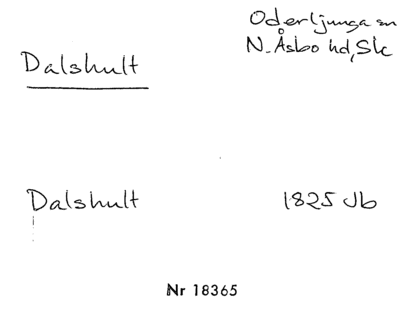 Oderljunga sn
N. Åsbo hd, Sk
Dalshult
Dalshult 1825 Jb
Nr 18365